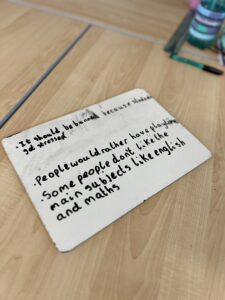 . It should be banned because students
get stressed
. People would rather have playtime
. Some people don't like the
main subjects like english
and maths